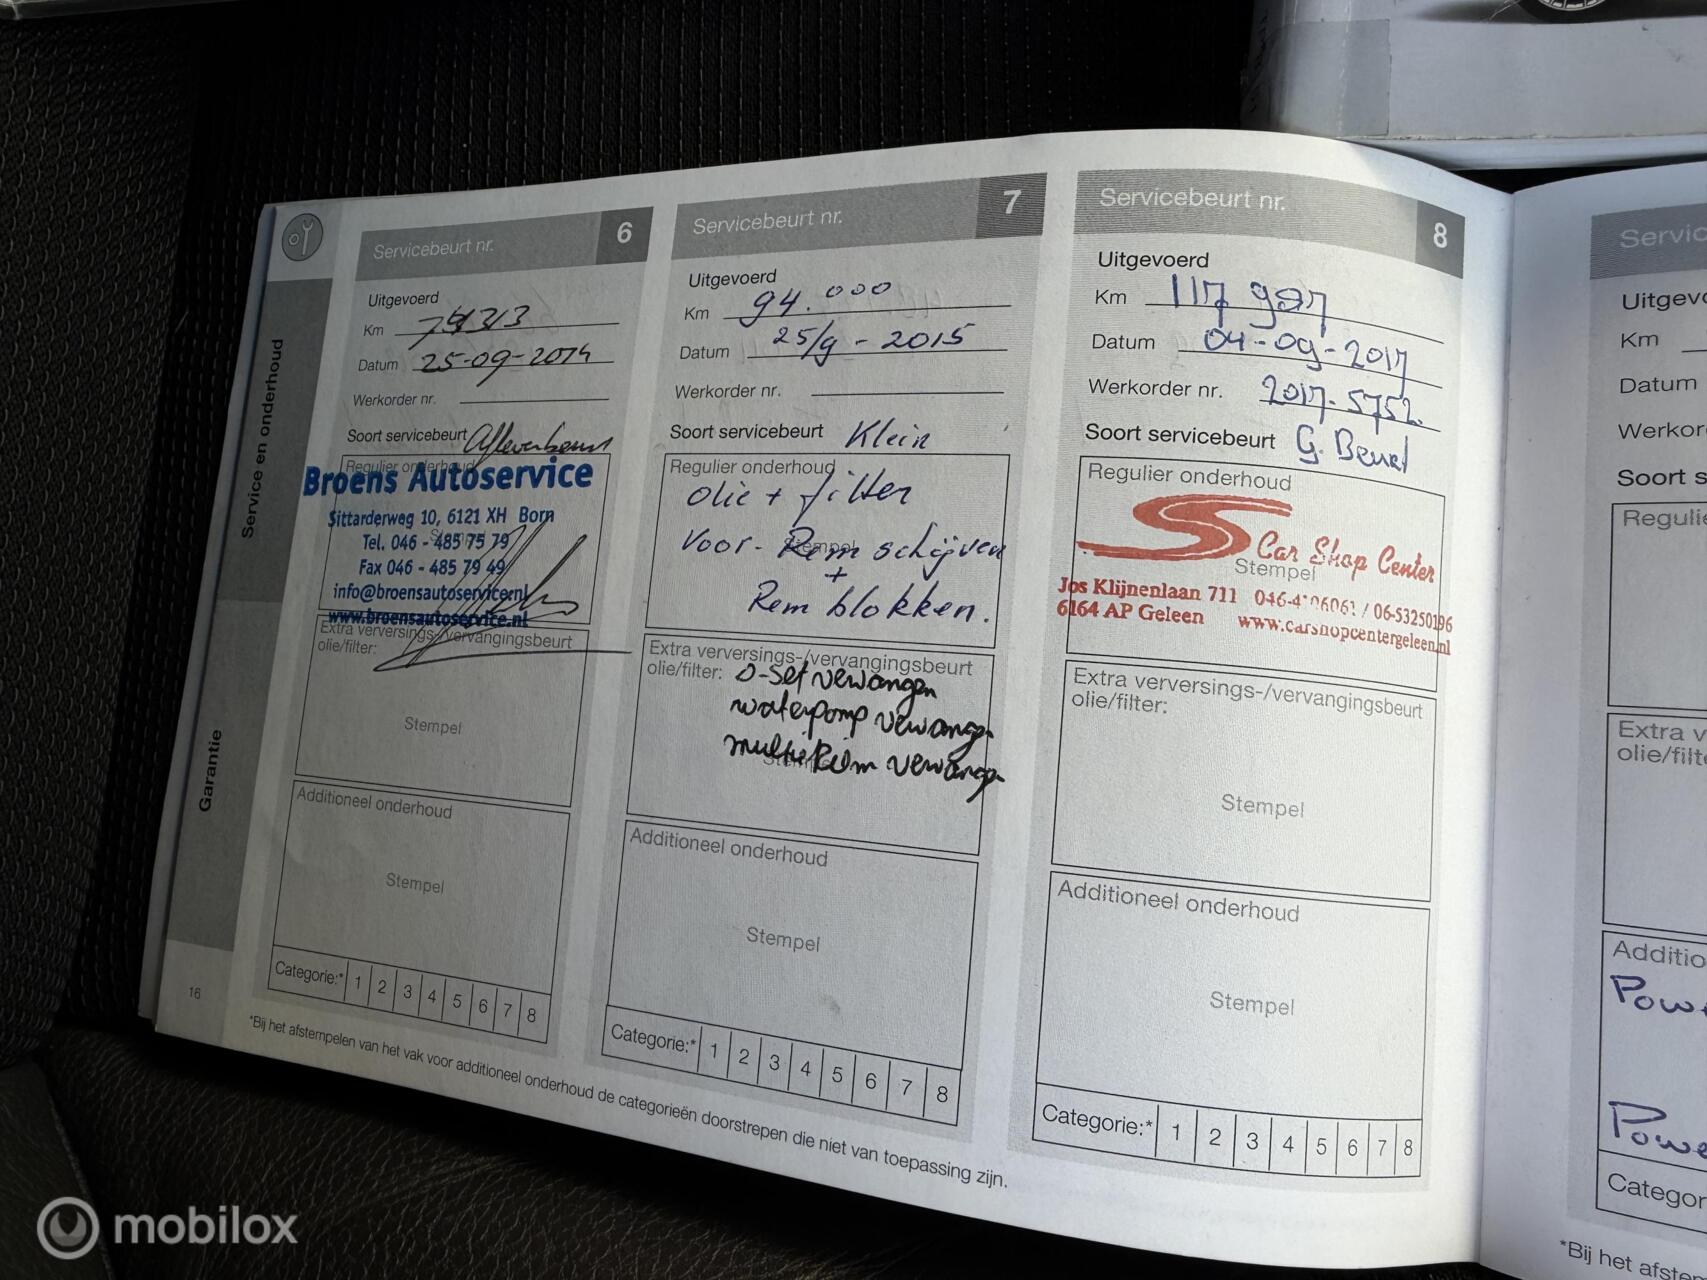 Service en onderhoud
Garantie
16
Servicebeurt nr. 6
Uitgevoerd
Km
Datum 25-09-2014
Werkorder nr.
Soort servicebeurt Afleverbeurt
Regulier onderhoud
Broens Autoservice
Sittarderweg 10, 6121 XH Born
Tel. 046 - 485 75 79
Fax 046 - 485 79 49
info@broensautoservice.nl
www.broensautoservice.nl
Extra verversings-/vervangingsbeurt
olie/filter:
Stempel
Additioneel onderhoud
Stempel
Categorie:* 1 2 3 4 5 6 7 8
Servicebeurt nr. 7
Uitgevoerd
Km 94.000
Datum 25/9 - 2015
Werkorder nr.
Soort servicebeurt Klein
Regulier onderhoud
olie + filter
Stempel
Voor - Remschijven
+
Remblokken.
Extra verversings-/vervangingsbeurt
olie/filter: D-set vervangen
waterpomp vervangen
multieriem vervangen
Stempel
Additioneel onderhoud
Stempel
Categorie:* 1 2 3 4 5 6 7 8
Servicebeurt nr. 8
Uitgevoerd
Km 117 987
Datum 04-09-2017
Werkorder nr. 2017-5752.
Soort servicebeurt G. Beurt
Regulier onderhoud
Car Shop Center
Stempel
Jos Klijnenlaan 711 / 06-53250196
6164 AP Geleen www.carshopcentergeleen.nl
Extra verversings-/vervangingsbeurt
olie/filter:
Stempel
Additioneel onderhoud
Stempel
Categorie:* 1 2 3 4 5 6 7 8
*Bij het afstempelen van het vak voor additioneel onderhoud de categorieën doorstrepen die niet van toepassing zijn.
Servic
Uitgevo
Km
Datum
Werkor
Soort s
Regulie
Extra v
olie/filte
Additio
Powe
Powe
Categor
*Bij het afste
mobilox